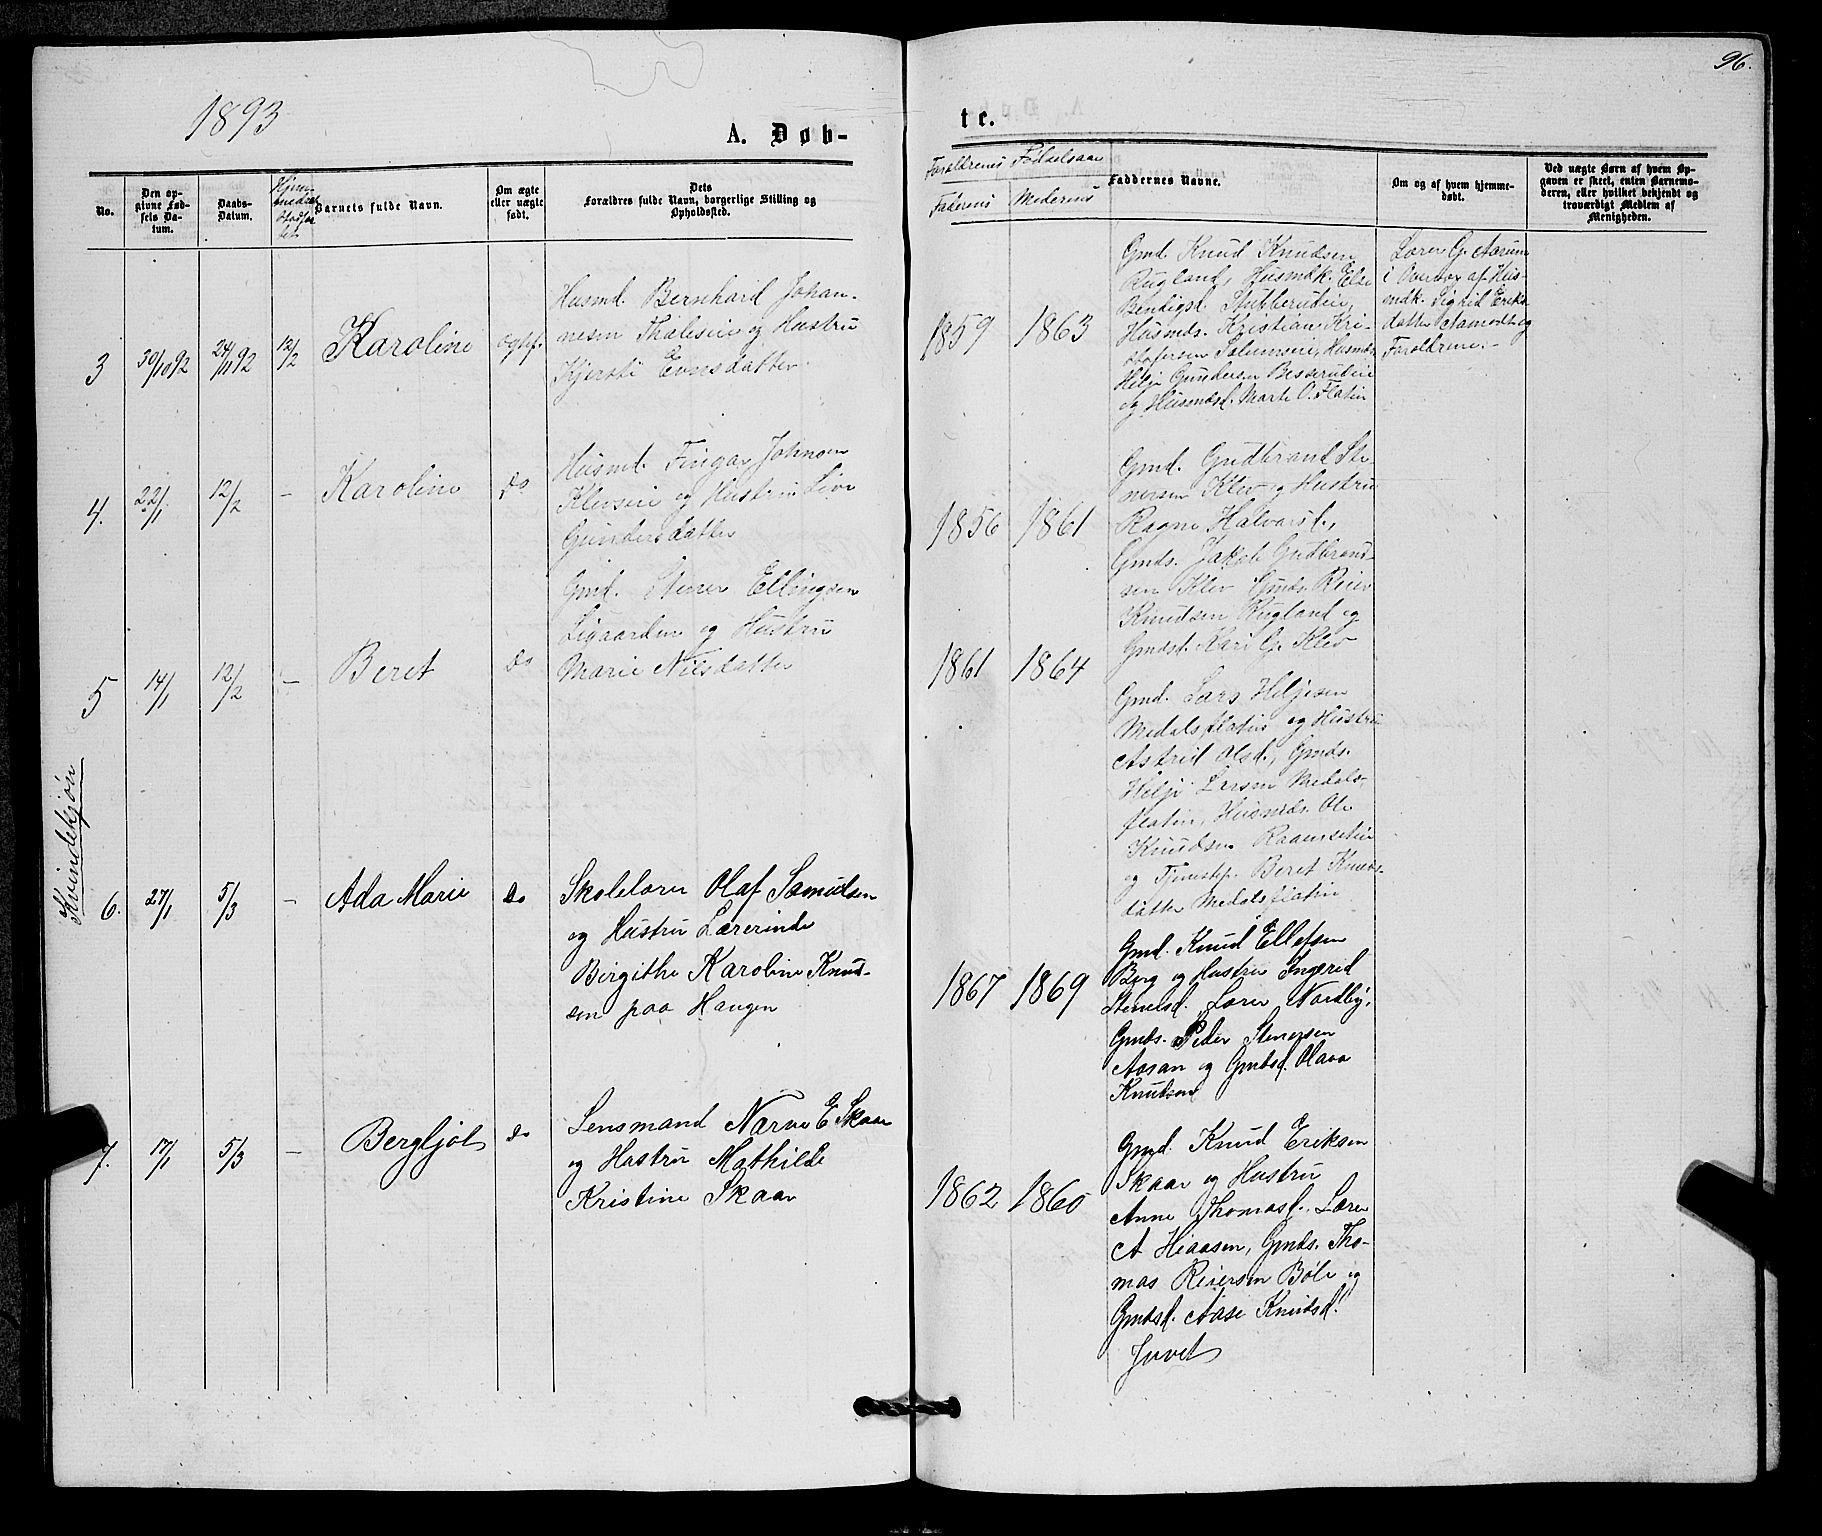 96.
1893
A. Døb-
te.
No.
Den op-
givne Fød-
sels Da-
tum.
Daabs-
Datum.
Barnets fulde Navn.
Om ægte
eller uægte
født.
Dets
Forældres fulde Navn, borgerlige Stilling og
Opholdssted.
Forældrenes Fødselsaar
Faderens Moderens
Faddernes Navne.
Om og af hvem hjemme-
døbt.
Ved uægte Børn af hvem Op-
gaven er skeet, enten Barnemo-
deren, eller hvilket bekjendt og
troværdigt Medlem af
Menigheden.
Kvindekjøn
3 30/10 92 24/11 92 12/2 Karoline
Husmd. Bernhard Johan-
nesen Tholeseie og Hustru
Kjersti Evensdatter
1859 1863
Gmd. Knud Knudsen
Rugland, Husmdk. Else
Bendigsd. Stubberudeie,
Husmds. Kristian Kri-
stofersen Solumseie, Husmds.
Helje Gundersen Besserudeie
og Husmdsd. Marte O. Flatin
Lærer G. Aarum
i Overvær af Hus-
mdk. Sigrid Eriks-
datter Aamodt og
Forældrene.
4. 22/1 12/2 - Karoline do
Husmd. Fingar Johnsen
Klevseie og Hustru Live
Gundersdatter
1856 1861
Gmd. Gudbrand Ste-
nersen Klev og Hustru
Ragne Halvorsd.,
Gmds. Jakob Gudbrand-
sen Klev Gmds. Reier
Knudsen Rugland og
Gmdsd. Kari G. Klev
5 14/1 12/2 - Beret do
Gmd. Stener Ellingsen
Ligaarden og Hustru
Marie Nilsdatter
1861 1864
Gmd. Lars Heljesen
Medalsflatin og Hustru
Astrid Olsd., Gmds.
Helje Larsen Medals-
flatin, Husmds. Ole
Knudsen Raamseteie
og Tjenestep. Beret Knuds-
datter Medalsflatin
6. 27/1 5/3 - Ada Marie do
Skolelærer Olaf Samulsen
og Hustru Lærerinde
Birgithe Karoline Knud-
sen paa Haugen
1867 1869
Gmd. Knud Ellefsen
Berg og Hustru Ingerid
Stenersd. Lærer Nordby,
Gmds. Peder Stenersen
Aasan og Gmdsd. Olava
Knudsen
7. 17/1 5/3 - Bergljot do
Lensmand Narve E Skaar
og Hustru Mathilde
Kristine Skaar
1862 1860
Gmd. Knud Eriksen
Skaar og Hustru
Anne Thomasd. Lærer
A Hiaasen, Gmds. Tho-
mas Reiersen Bøle og
Gmdsd. Aase Knudsd.
Juvet